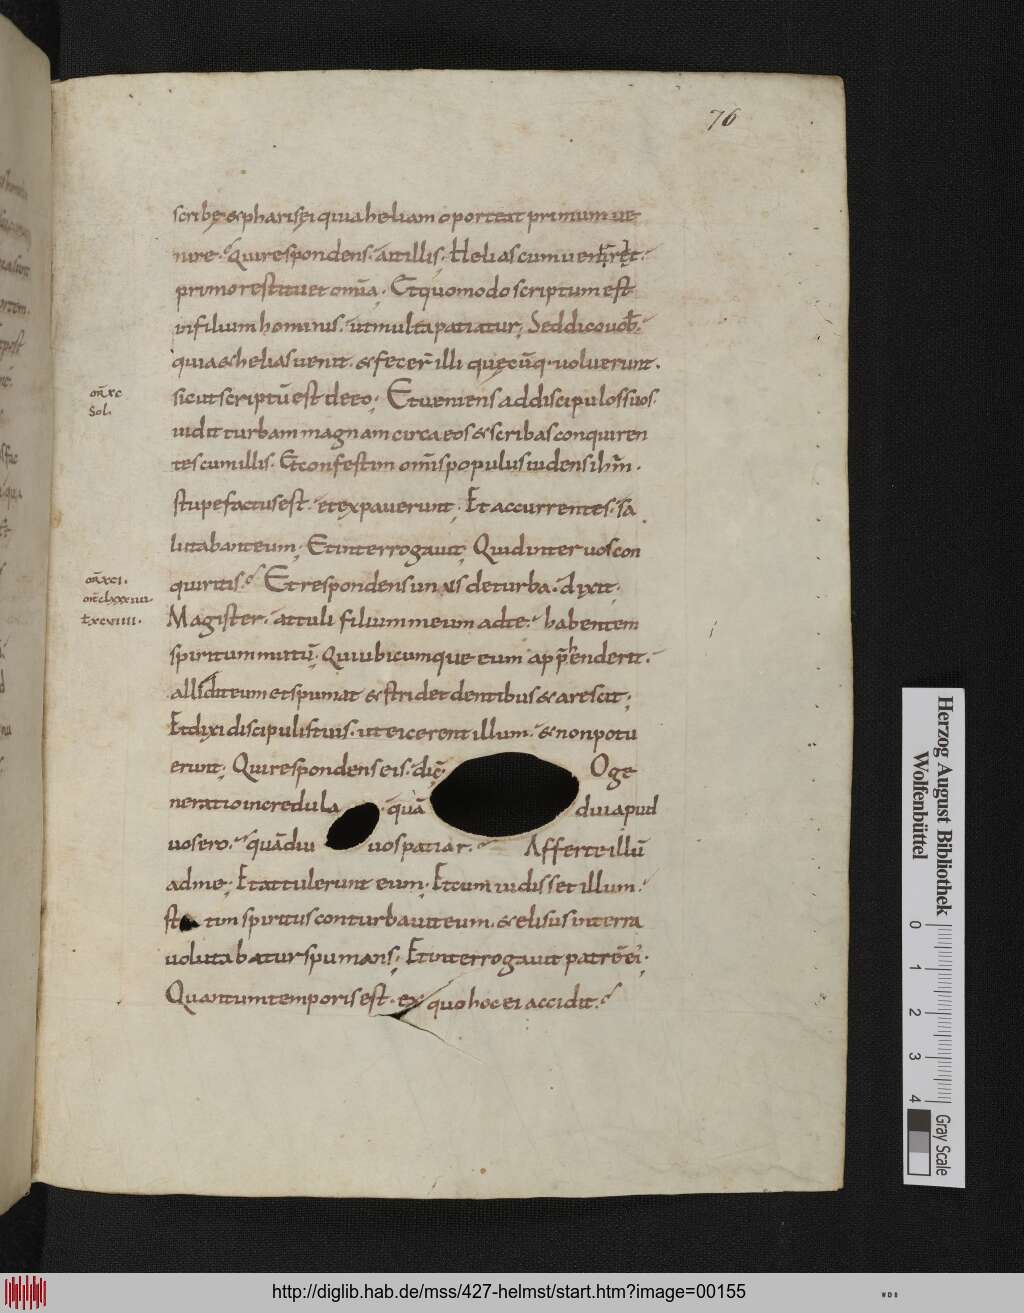 76
scribę & pharisęi quia heliam oportet primum ue
nire. Qui respondens. ait illis. Helias cum uenirēt.
primo restituet om̄ia. Et quomodo scriptum est
in filium hominis. ut multa patiatur. Sed dico uob̄.
quia & helias uenit. & fecer̄ illi quęcūq. uoluerunt.
sicut scriptū est de eo. Et ueniens ad discipulos suos.
uidit turbam magnam circa eos & scribas conquiren
tes cum illis. Et confestim om̄is populus uidens ih̄m.
stupefactus est. et expauerunt. Et accurrentes. sa
lutabant eum. Et interrogauit. Quid inter uos con
quiritis. Et respondens unus de turba. dixit.
Magister. attuli filium meum ad te. habentem
spiritum mutū. Qui ubicumque eum app̄henderit.
allidit eum et spumat & stridet dentibus & arescit.
Et dixi discipulis tuis. ut eicerent illum. & non potu
erunt. Qui respondens eis. dic̄. O ge
neratio incredula. quā diu apud
uos ero. quādiu uos patiar. Afferte illū
ad me. Et attulerunt eum. Et cum uidisset illum.
statim spiritus conturbauit eum. & elisus in terra
uolutabatur spumans. Et interrogauit patrē ei'.
Quantum temporis est. ex quo hoc ei accidit.
om̄ xc
Sol.
om̄ xci.
mt̄ clxxiiii.
l̄ xcviiii.
Herzog August Bibliothek
Wolfenbüttel
0 1 2 3 4
Gray Scale
http://diglib.hab.de/mss/427-helmst/start.htm?image=00155